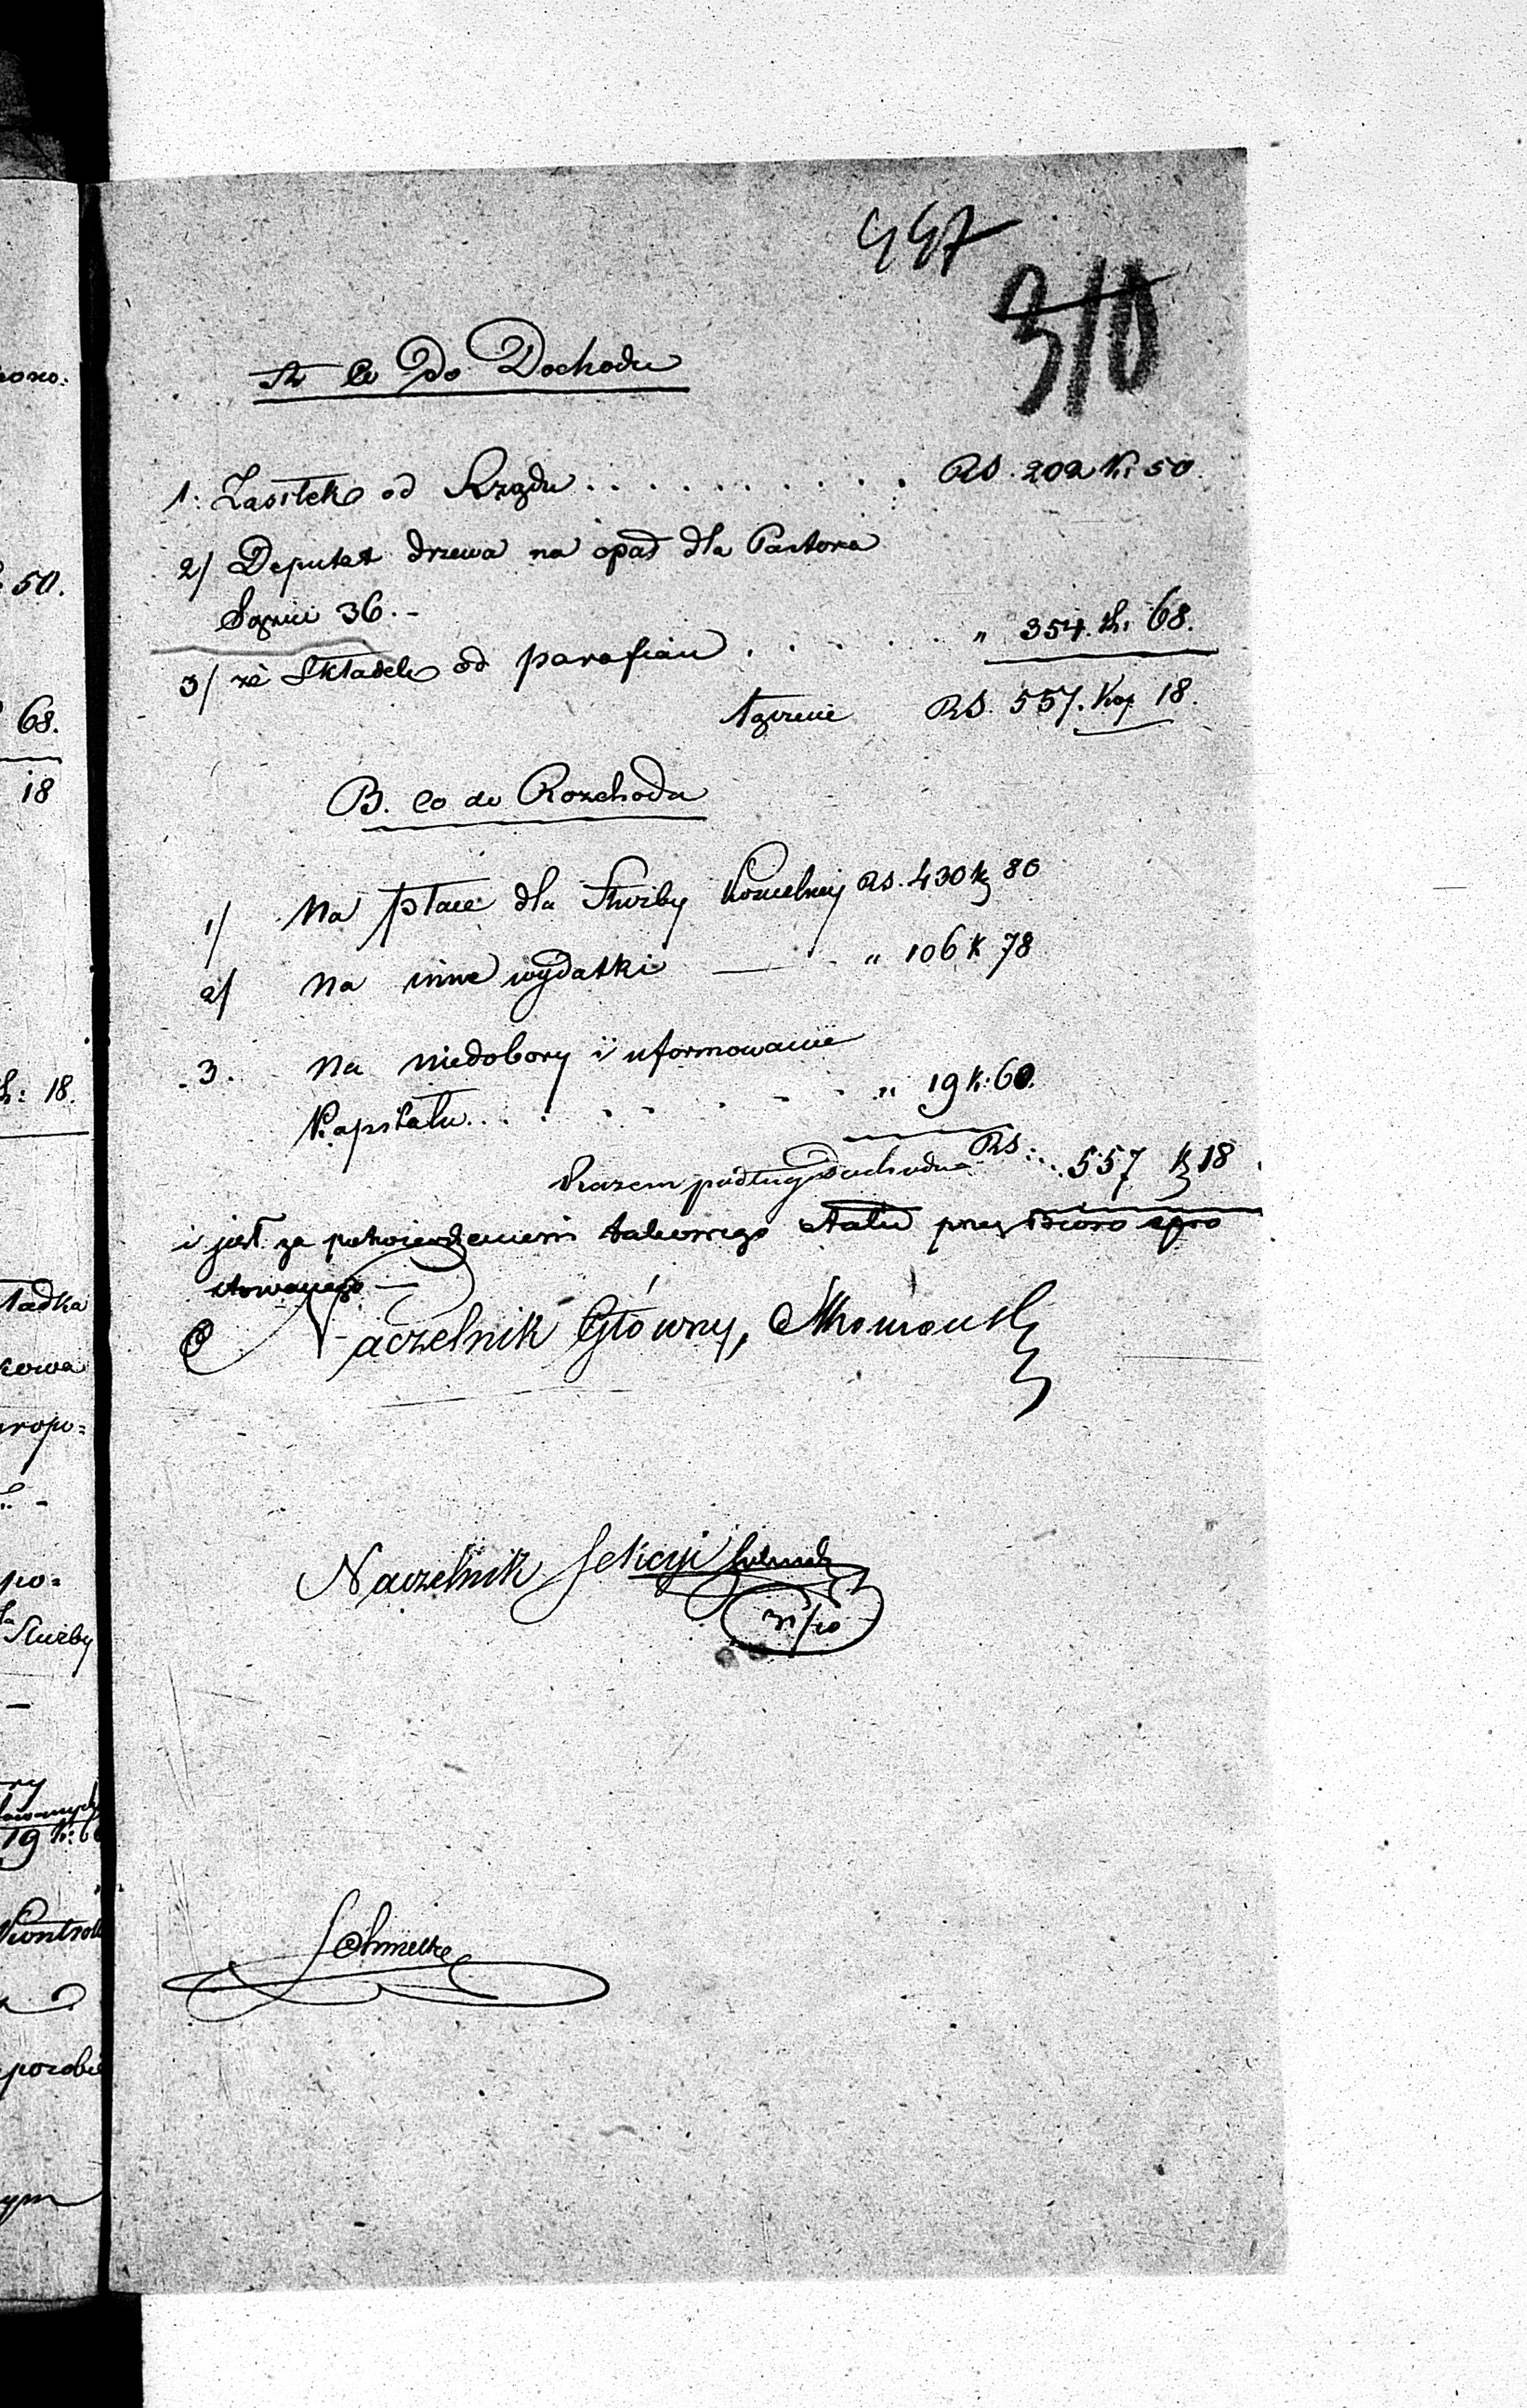 447
310
A Co Do Dochodu
1. Zasiłek od Rządu . . . . . . . . . . RS. 202 k. 50.
2/ Deputat drzewa na opał dla Pastora
Sążni 36.-
3/ ze Składek od parafian . . . . . . " 354. k. 68.
łącznie RS. 557. Kop 18.
B. Co do Rozchodu
1/ Na płace dla Służby Kościelnej RS. 430 k 80
2/ Na inne wydatki — " 106 k 78
3. Na niedobory i uformowanie
Kapitału . . . . . . . . " 19 k. 60.
Razem podług Dochodu RS: . . 557 k 18
i jest za potwierdzeniem takowego etatu przez
Naczelnik Główny,
Naczelnik Sekcyi
31/10
50.
68.
18
k: 18.
ładka
kowa
propo=
po=
Służby
19 k: 6
Kontroll